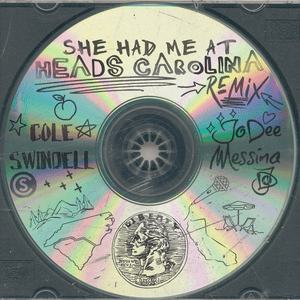 SHE HAD ME AT
HEADS CAROLINA
REMIX
COLE
SWINDELL
JoDee
Messina
S
LIBERTY